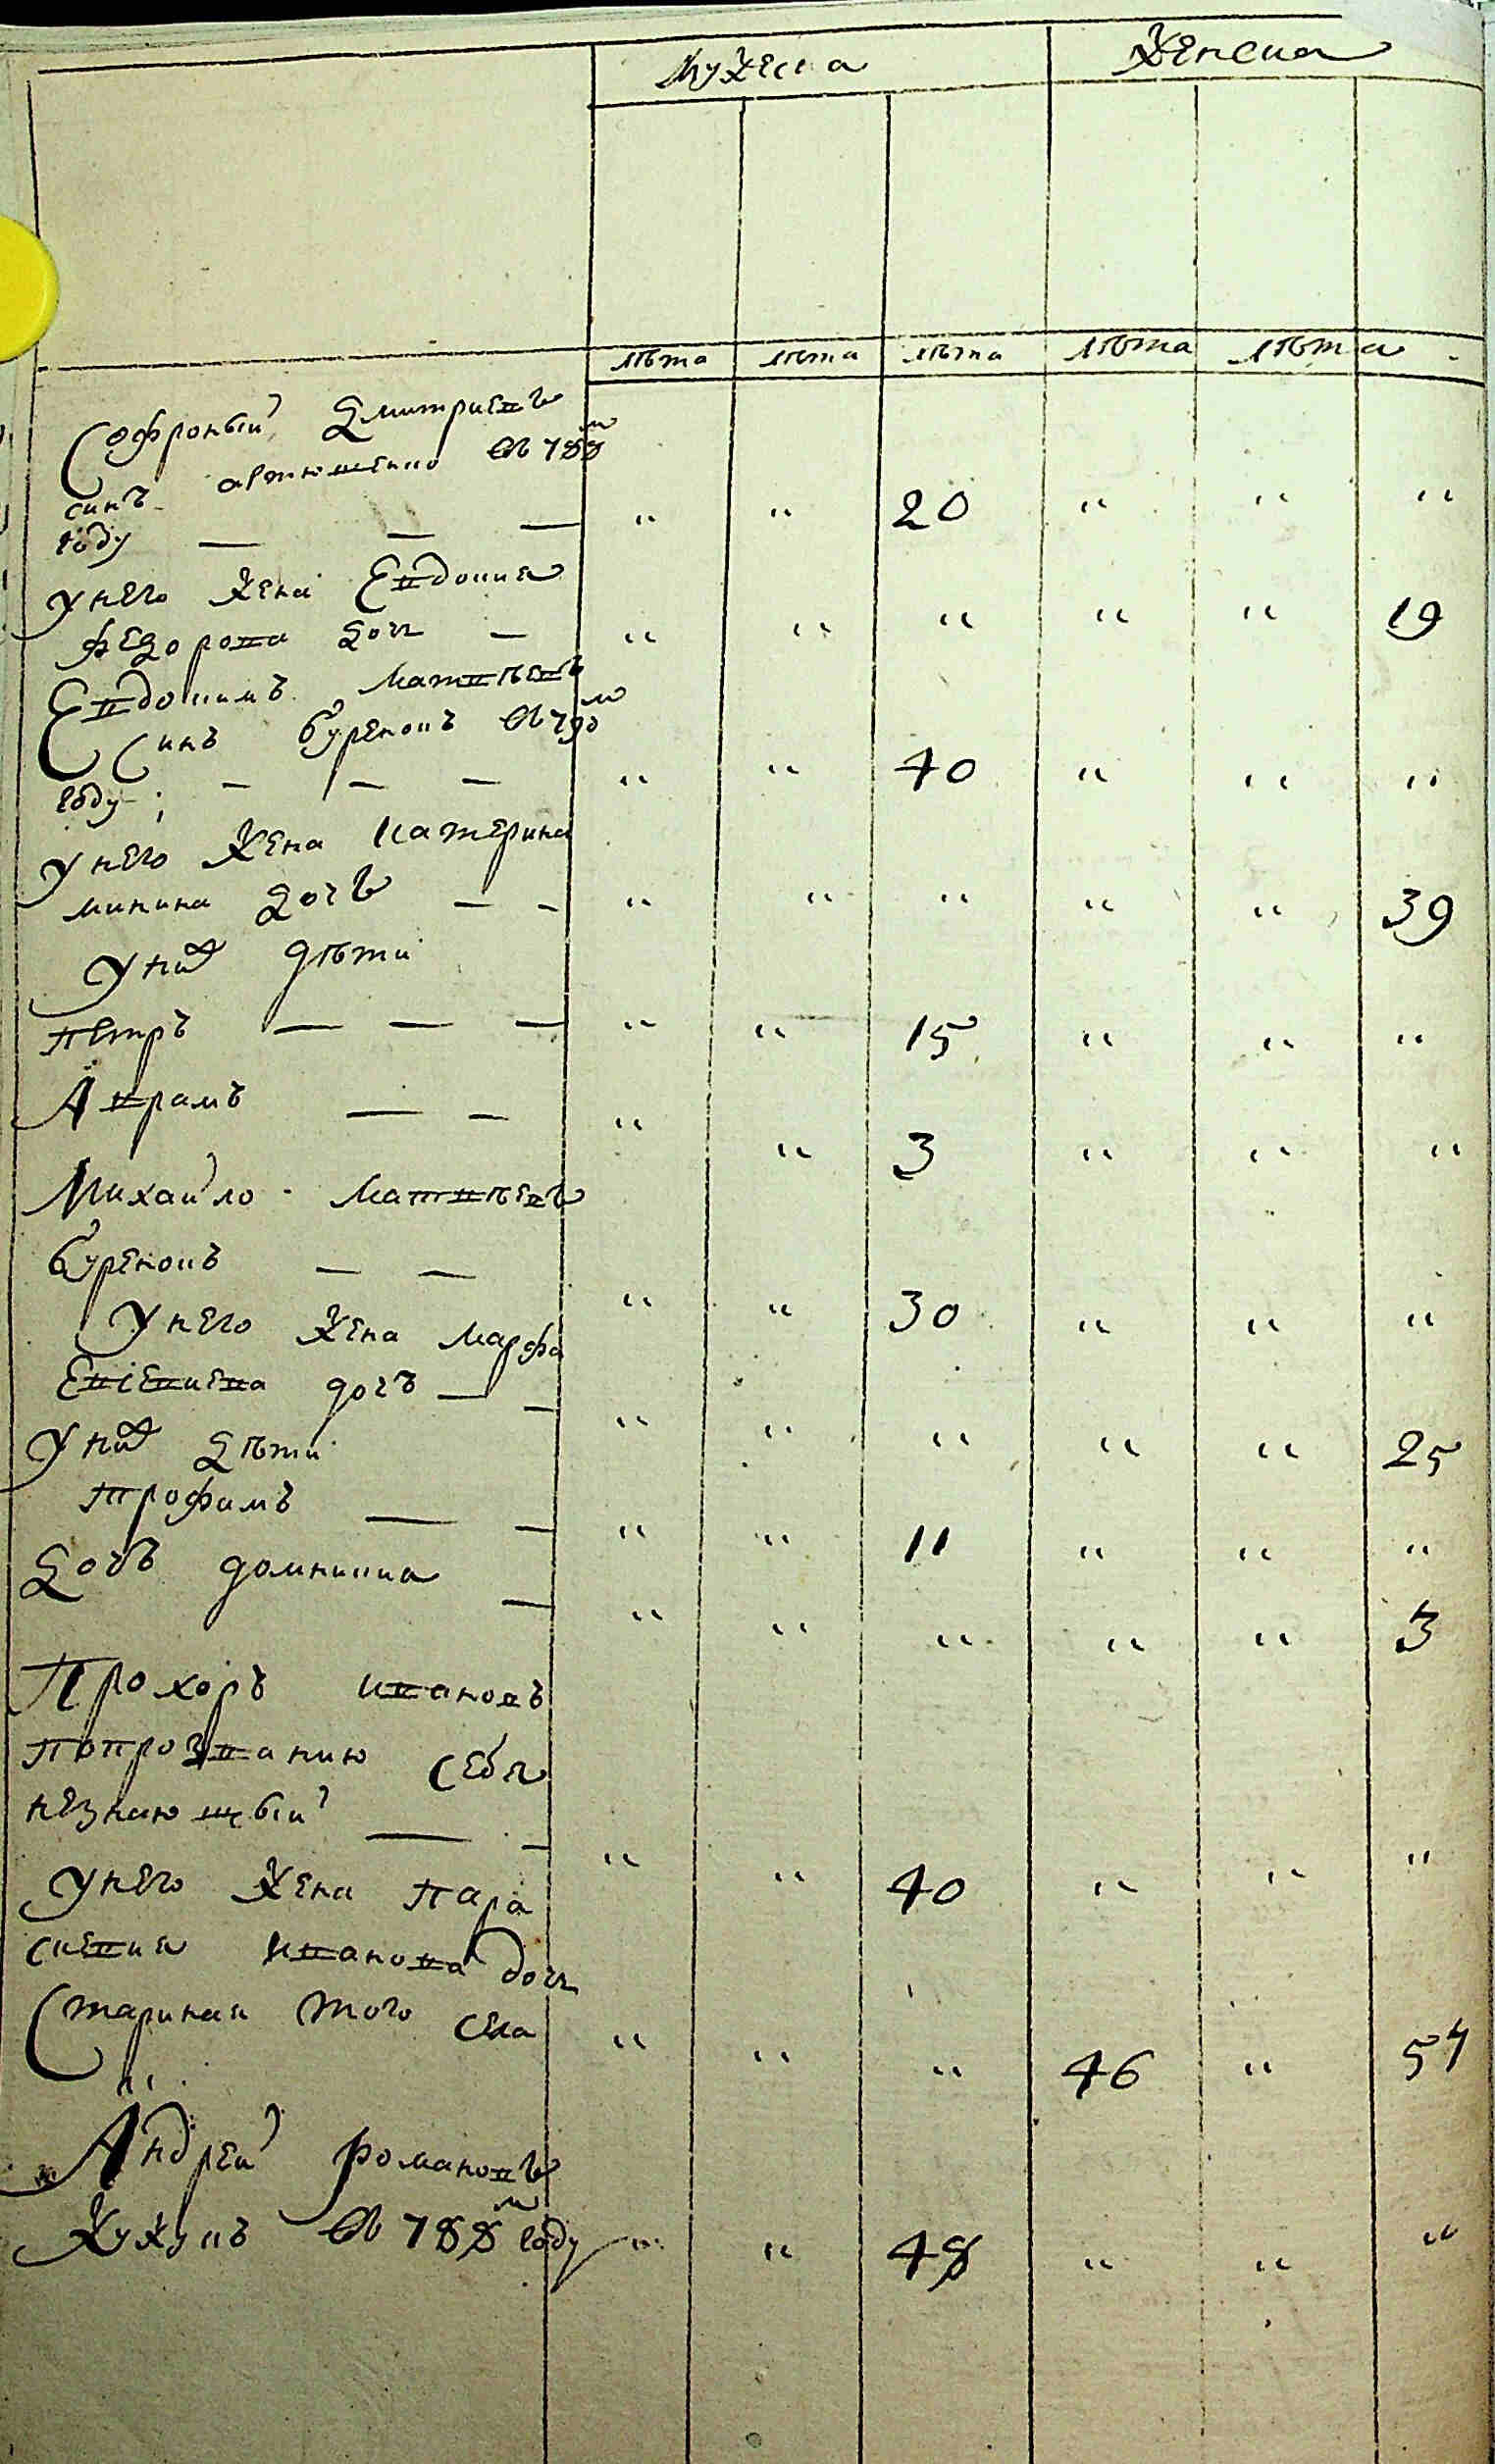 Мужеска Женска
лѣта лѣта лѣта лѣта лѣта
Софроный Дмитриевъ
синъ артюшенко въ 788м
году — — — " " 20 " " "
Унего жена Евдокия
федорова дочь — " " " " " 19
Евдокимъ Матвѣевъ
Синъ буренокъ въ 790м
году — — — " " 40 " " "
Унего жена катерина
минина дочь — — " " " " " 39
Уних дѣти
петръ — — — " " 15 " " "
Аврамъ — — " " 3 " " "
Михайло Матвѣевъ
буренокъ — — " " 30 " " "
Унего жена марфа
Евсевиева дочъ — — " " " " " 25
Уних дѣти
трофимъ — — " " 11 " " "
дочъ домникиа — " " " " " 3
Прохоръ ивановъ
попрозванию себя
незнающый — — " " 40 " " "
Унего жена пара
скевия иванова дочь
Старикая того села " " " 46 " 57
Андрей романовъ
Жужукъ въ 788м году " " 48 " " "